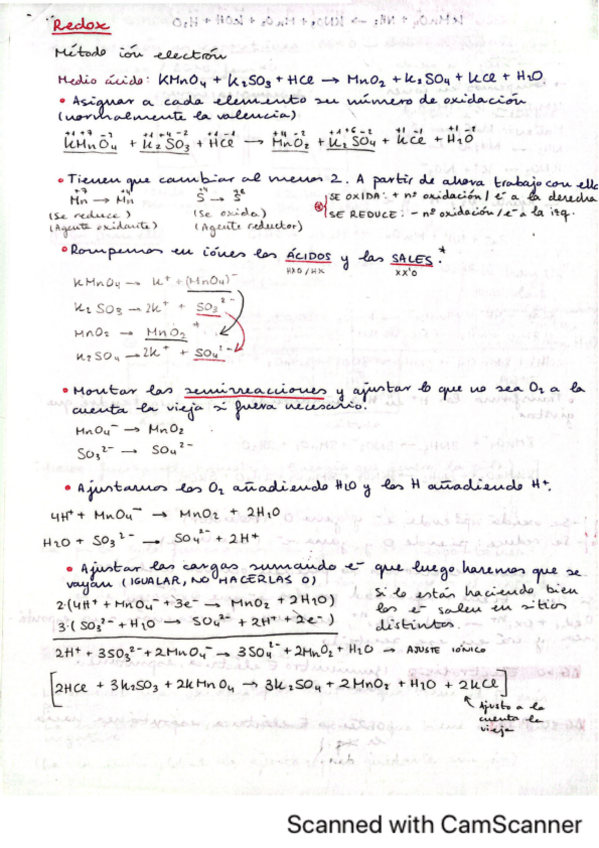 Redox
Método ión electrón
Medio ácido: KMnO4 + K2SO3 + HCl → MnO2 + K2SO4 + KCl + H2O
• Asignar a cada elemento su número de oxidación
(normalmente la valencia)
+1 +7 -2 +1 +4 -2 +1 -1 +4 -2 +1 +6 -2 +1 -1 +1 -2
KMnO4 + K2SO3 + HCl → MnO2 + K2SO4 + KCl + H2O
• Tienen que cambiar al menos 2. A partir de ahora trabajo con ell
+7 +4 +4 +6
Mn → Mn S → S
SE OXIDA: + nº oxidación / e- a la derecha
(Se reduce) (Se oxida)
SE REDUCE: - nº oxidación / e- a la izq.
(Agente oxidante) (Agente reductor)
• Rompemos en iónes los ÁCIDOS y las SALES.*
HXO / HX XX'O
KMnO4 → K+ + (MnO4)-
K2SO3 → 2K+ + SO3 2-
MnO2 → MnO2 *
K2SO4 → 2K+ + SO4 2-
• Montar las semirreacciones y ajustar lo que no sea O2 a la
cuenta la vieja si fuera necesario.
MnO4- → MnO2
SO3 2- → SO4 2-
• Ajustamos los O2 añadiendo H2O y los H añadiendo H+.
4H+ + MnO4- → MnO2 + 2H2O
H2O + SO3 2- → SO4 2- + 2H+
• Ajustar las cargas sumando e- que luego haremos que se
vayan (IGUALAR, NO HACERLAS 0)
2·(4H+ + MnO4- + 3e- → MnO2 + 2H2O)
3·(SO3 2- + H2O → SO4 2- + 2H+ + 2e-)
Si lo estás haciendo bien
los e- salen en sitios
distintos.
2H+ + 3SO3 2- + 2MnO4- → 3SO4 2- + 2MnO2 + H2O → AJUSTE IÓNICO
[2HCl + 3K2SO3 + 2KMnO4 → 3K2SO4 + 2MnO2 + H2O + 2KCl]
Ajusto a la
cuenta la
vieja
Scanned with CamScanner